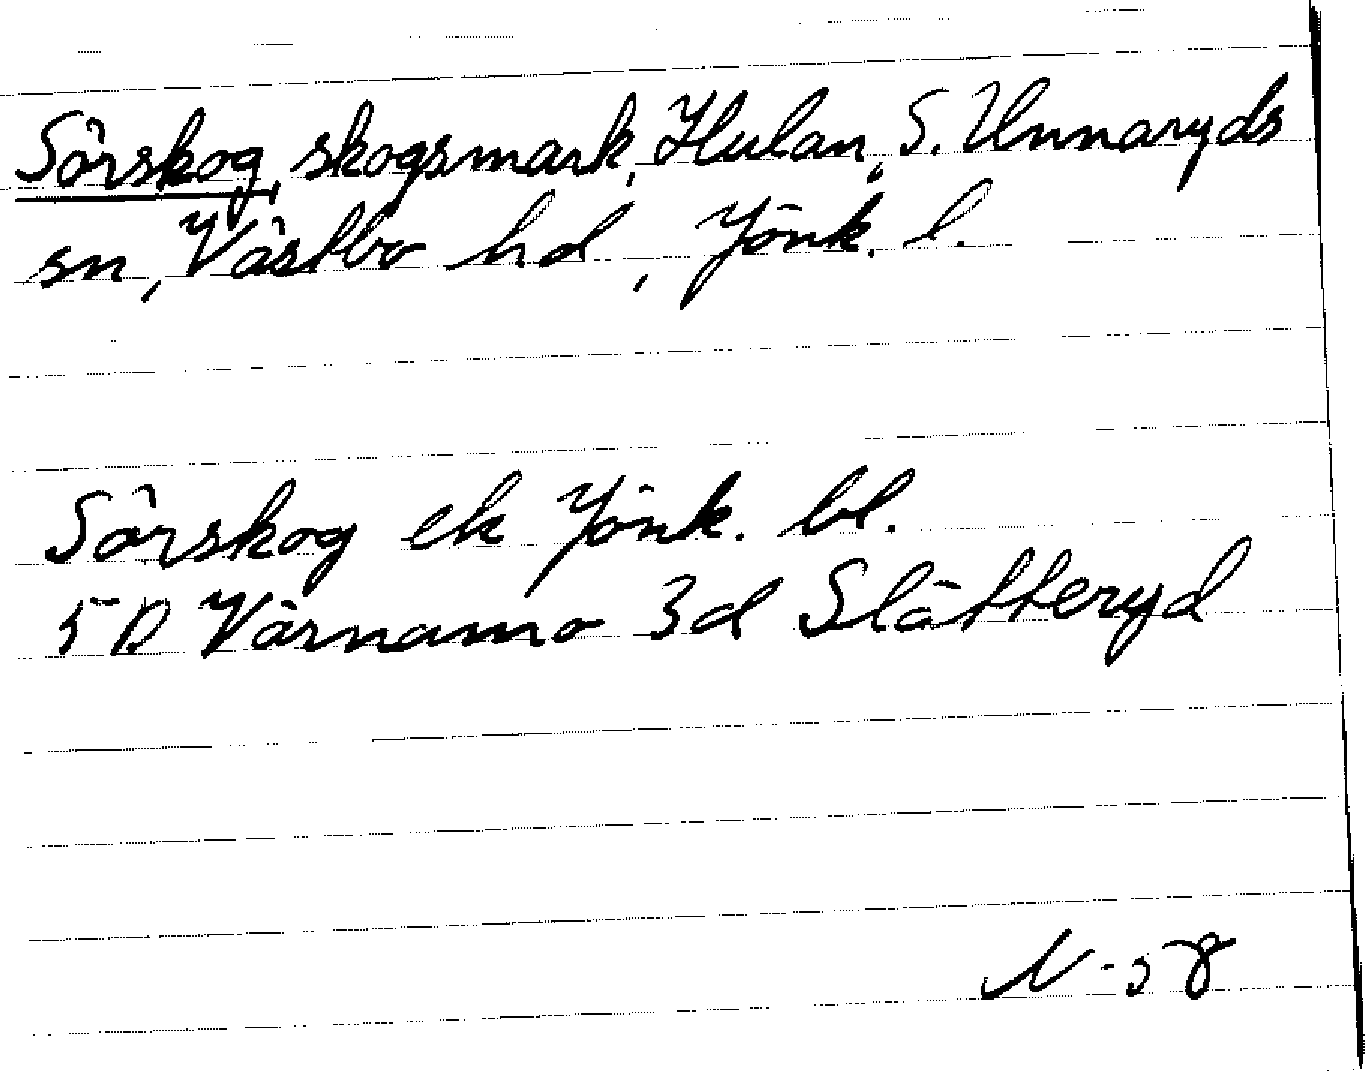 Sörskog, skogsmark, Hulan, S. Unnaryds
sn, Västbo hd, Jönk. l.
Sörskog ek Jönk. bl.
5D Värnamo 3d Slätteryd
N-58